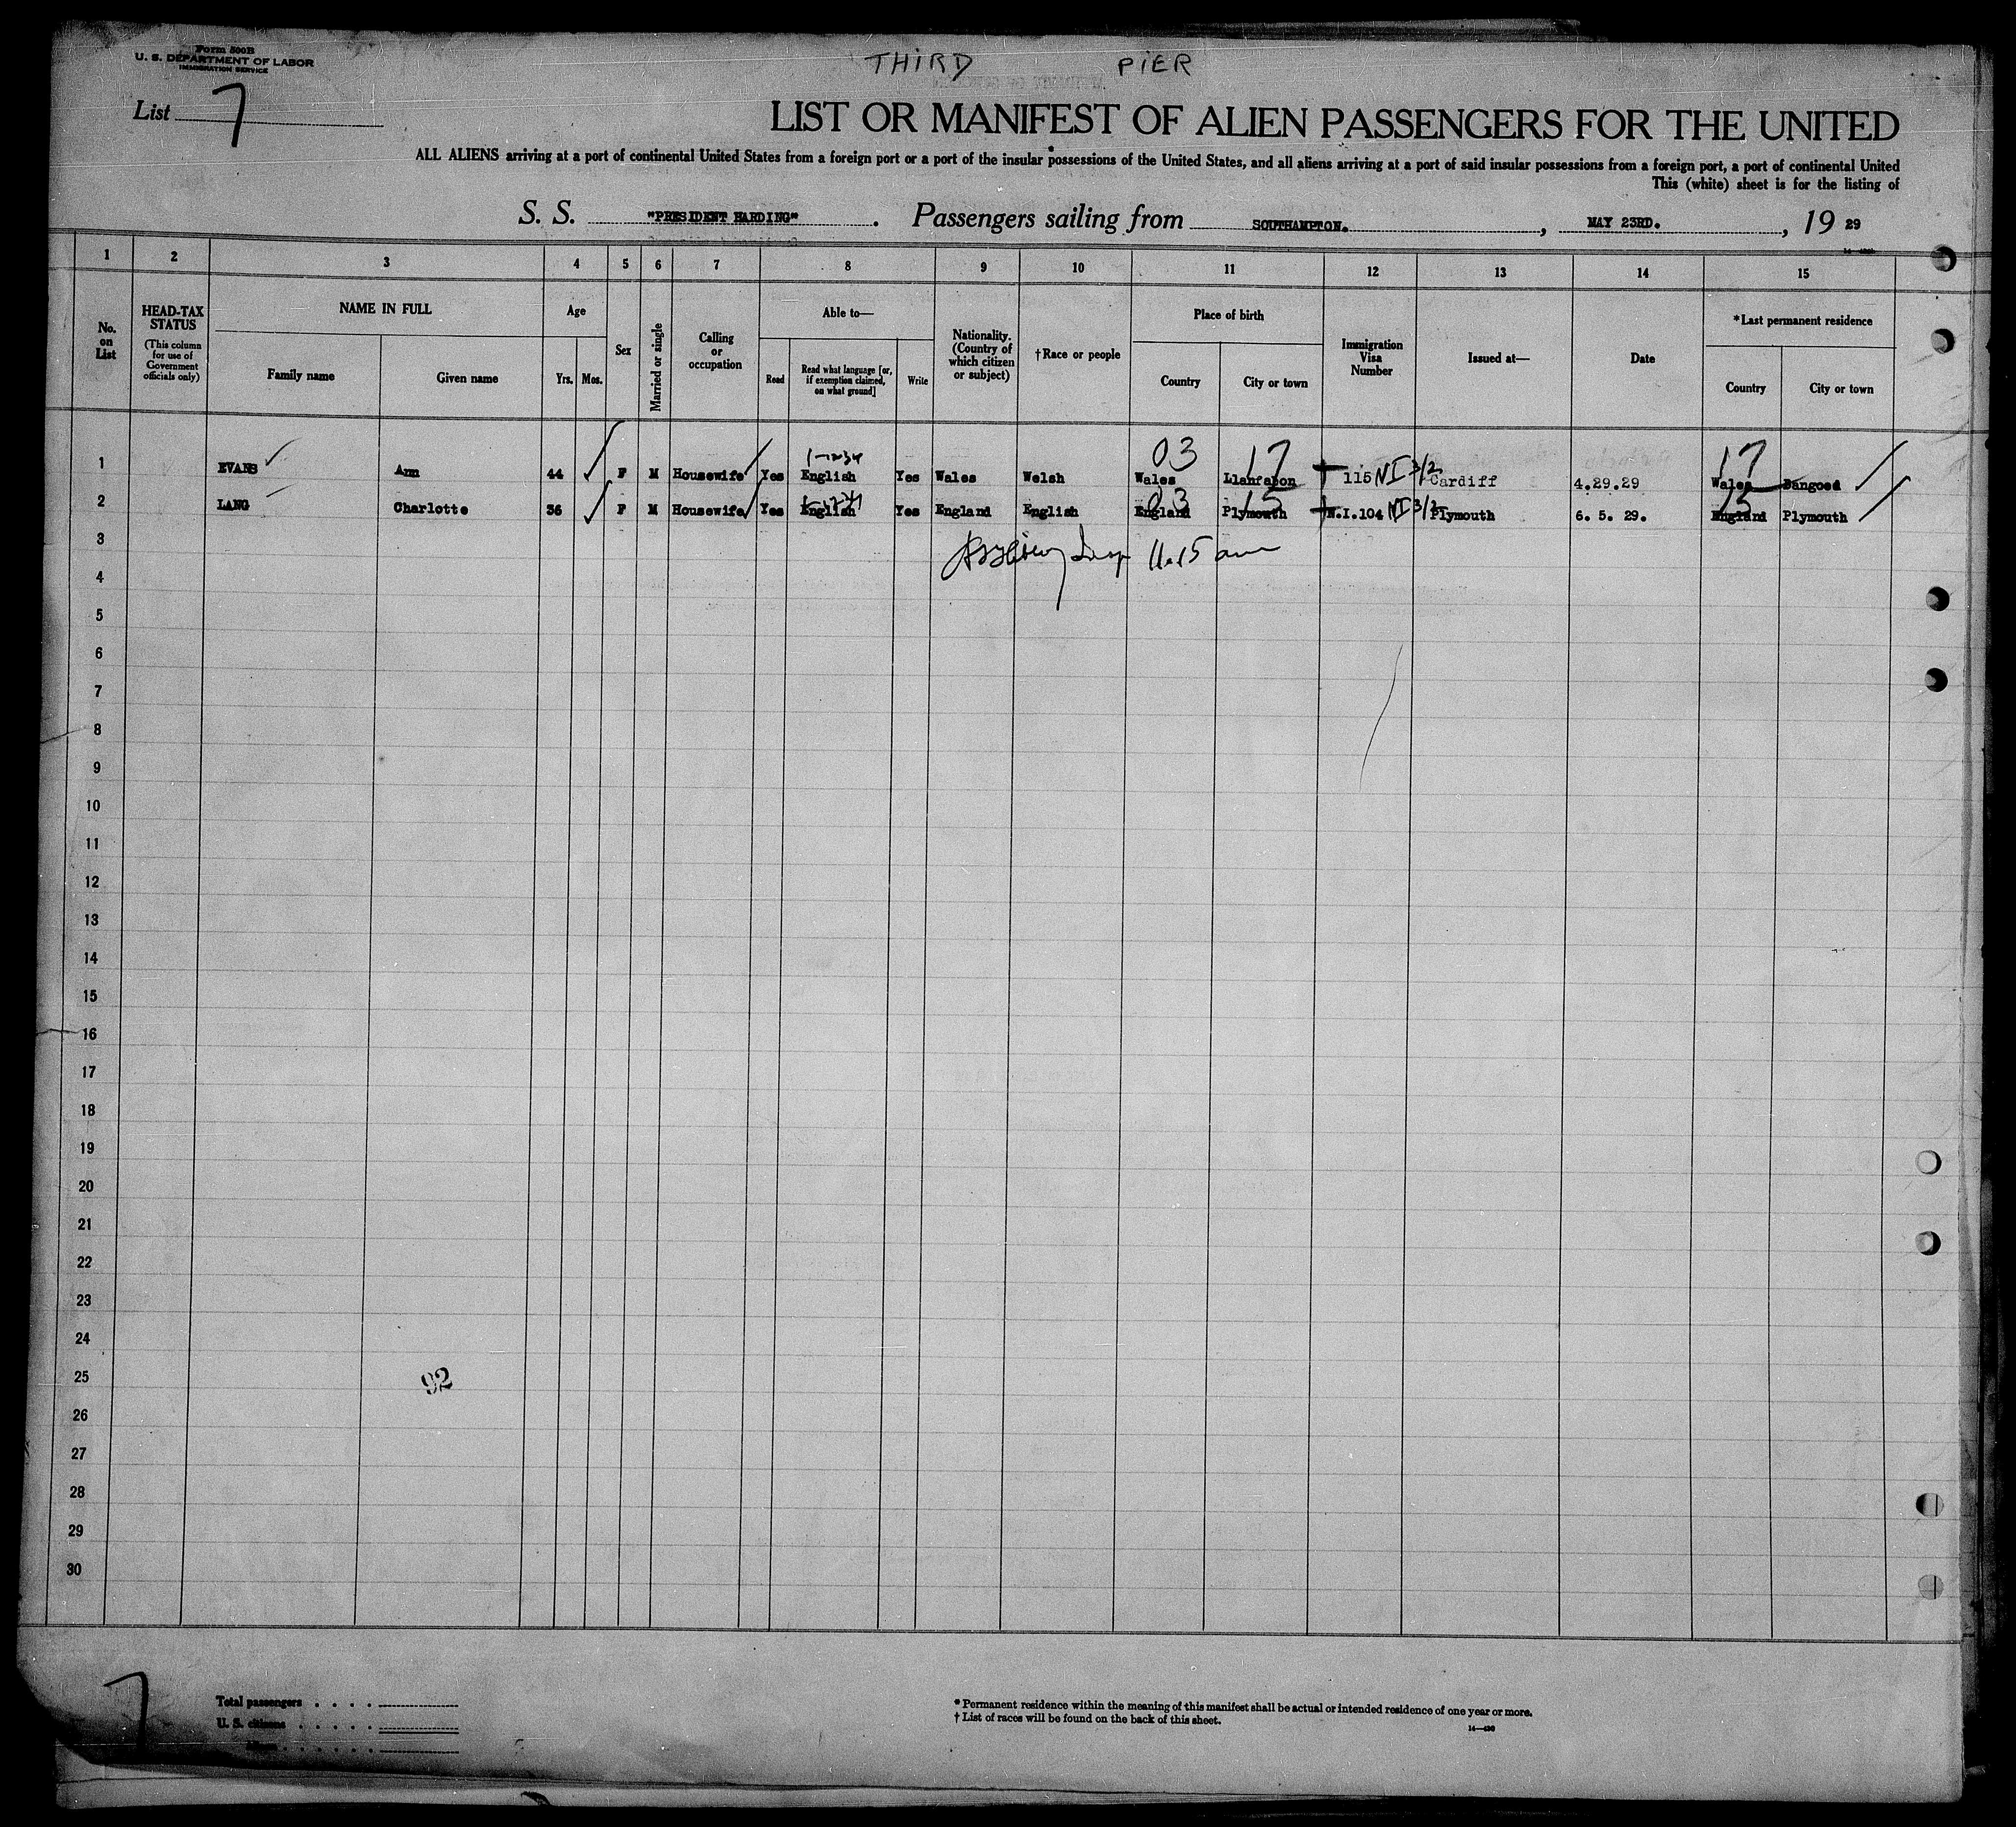 Form 500B
U. S. DEPARTMENT OF LABOR
IMMIGRATION SERVICE
THIRD PIER
List 7
LIST OR MANIFEST OF ALIEN PASSENGERS FOR THE UNITED
ALL ALIENS arriving at a port of continental United States from a foreign port or a port of the insular possessions of the United States, and all aliens arriving at a port of said insular possessions from a foreign port, a port of continental United
This (white) sheet is for the listing of
S. S. "PRESIDENT HARDING". Passengers sailing from SOUTHAMPTON., MAY 23RD., 19 29
1 2 3 4 5 6 7 8 9 10 11 12 13 14 15
No. on List
HEAD-TAX STATUS
(This column for use of Government officials only)
NAME IN FULL
Family name
Given name
Age
Yrs.
Mos.
Sex
Married or single
Calling or occupation
Able to—
Read
Read what language [or, if exemption claimed, on what ground]
Write
Nationality. (Country of which citizen or subject)
†Race or people
Place of birth
Country
City or town
Immigration Visa Number
Issued at—
Date
*Last permanent residence
Country
City or town
03 17 17
1 EVANS Ann 44 F M Housewife Yes English Yes Wales Welsh Wales Llanfabon 115 NI 3/2 Cardiff 4.29.29 Wales Bangoed
03 15 15
2 LANG Charlotte 36 F M Housewife Yes English Yes England English England Plymouth N.I.104 NI 3/2 Plymouth 6. 5. 29. England Plymouth
3
11.15 am
4
5
6
7
8
9
10
11
12
13
14
15
16
17
18
19
20
21
22
23
24
25
92
26
27
28
29
30
7
Total passengers
U. S. citizens
Aliens
* Permanent residence within the meaning of this manifest shall be actual or intended residence of one year or more.
† List of races will be found on the back of this sheet.
14—430